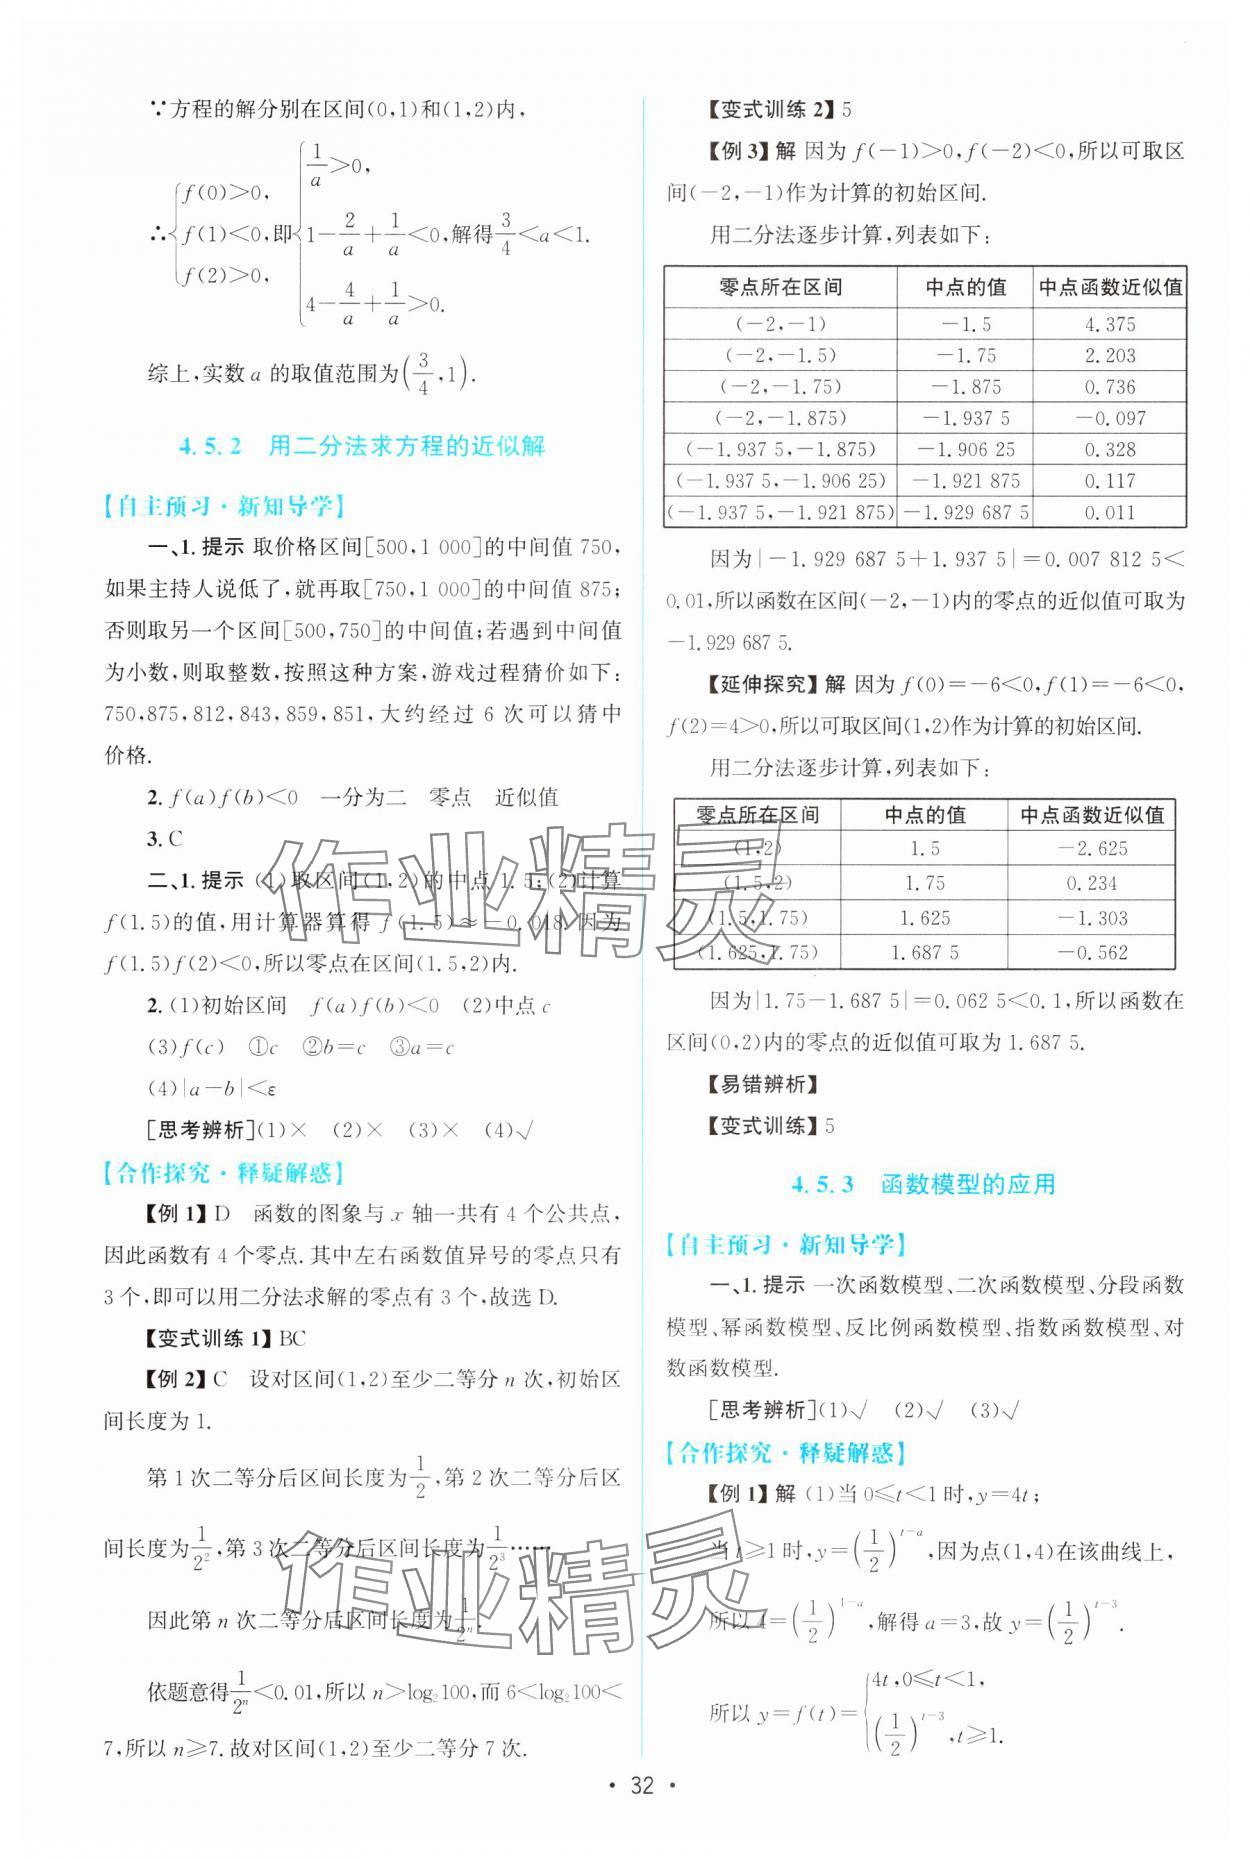 ∵方程的解分别在区间(0,1)和(1,2)内,
∴{f(0)>0, f(1)<0, f(2)>0, 即{1/a>0, 1-2/a+1/a<0, 4-4/a+1/a>0. 解得3/4<a<1.
综上,实数 a 的取值范围为(3/4,1).
4.5.2 用二分法求方程的近似解
【自主预习·新知导学】
一、1.提示 取价格区间[500,1 000]的中间值 750,
如果主持人说低了,就再取[750,1 000]的中间值 875;
否则取另一个区间[500,750]的中间值;若遇到中间值
为小数,则取整数,按照这种方案,游戏过程猜价如下:
750,875,812,843,859,851,大约经过 6 次可以猜中
价格.
2.f(a)f(b)<0 一分为二 零点 近似值
3.C
二、1.提示 (1)取区间(1,2)的中点 1.5;(2)计算
f(1.5)的值,用计算器算得 f(1.5)≈-0.018.因为
f(1.5)f(2)<0,所以零点在区间(1.5,2)内.
2.(1)初始区间 f(a)f(b)<0 (2)中点 c
(3)f(c) ①c ②b=c ③a=c
(4)|a-b|<ε
[思考辨析](1)× (2)× (3)× (4)√
【合作探究·释疑解惑】
【例 1】D 函数的图象与 x 轴一共有 4 个公共点,
因此函数有 4 个零点.其中左右函数值异号的零点只有
3 个,即可以用二分法求解的零点有 3 个,故选 D.
【变式训练 1】BC
【例 2】C 设对区间(1,2)至少二等分 n 次,初始区
间长度为 1.
第 1 次二等分后区间长度为1/2,第 2 次二等分后区
间长度为1/2²,第 3 次二等分后区间长度为1/2³……
因此第 n 次二等分后区间长度为1/2ⁿ.
依题意得1/2ⁿ<0.01,所以 n>log₂100,而 6<log₂100<
7,所以 n≥7.故对区间(1,2)至少二等分 7 次.
【变式训练 2】5
【例 3】解 因为 f(-1)>0,f(-2)<0,所以可取区
间(-2,-1)作为计算的初始区间.
用二分法逐步计算,列表如下:
零点所在区间 中点的值 中点函数近似值
(-2,-1) -1.5 4.375
(-2,-1.5) -1.75 2.203
(-2,-1.75) -1.875 0.736
(-2,-1.875) -1.937 5 -0.097
(-1.937 5,-1.875) -1.906 25 0.328
(-1.937 5,-1.906 25) -1.921 875 0.117
(-1.937 5,-1.921 875) -1.929 687 5 0.011
因为|-1.929 687 5+1.937 5|=0.007 812 5<
0.01,所以函数在区间(-2,-1)内的零点的近似值可取为
-1.929 687 5.
【延伸探究】解 因为 f(0)=-6<0,f(1)=-6<0,
f(2)=4>0,所以可取区间(1,2)作为计算的初始区间.
用二分法逐步计算,列表如下:
零点所在区间 中点的值 中点函数近似值
(1,2) 1.5 -2.625
(1.5,2) 1.75 0.234
(1.5,1.75) 1.625 -1.303
(1.625,1.75) 1.687 5 -0.562
因为|1.75-1.687 5|=0.062 5<0.1,所以函数在
区间(0,2)内的零点的近似值可取为 1.687 5.
【易错辨析】
【变式训练】5
4.5.3 函数模型的应用
【自主预习·新知导学】
一、1.提示 一次函数模型、二次函数模型、分段函数
模型、幂函数模型、反比例函数模型、指数函数模型、对
数函数模型.
[思考辨析](1)√ (2)√ (3)√
【合作探究·释疑解惑】
【例 1】解 (1)当 0≤t<1 时,y=4t;
当 t≥1 时,y=(1/2)^(t-a),因为点(1,4)在该曲线上,
所以 4=(1/2)^(1-a),解得 a=3,故 y=(1/2)^(t-3).
所以 y=f(t)={4t,0≤t<1, (1/2)^(t-3),t≥1.
· 32 ·
作业精灵
作业精灵